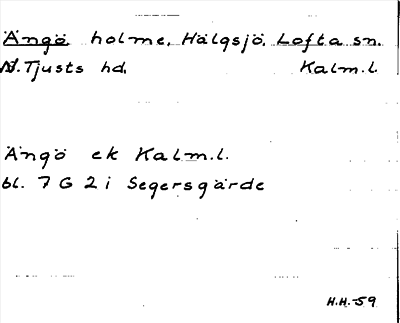 Ängö holme, Hälgsjö, Lofta sn.
N. Tjusts hd. Kalm.l.
Ängö ek Kalm.l.
bl. 7 G 2 i Segersgärde
H.H.-59